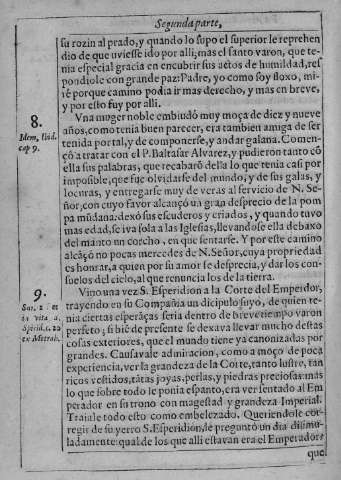 Segunda parte,
su rozin al prado, y quando lo supo el superior le reprehen
dio de que uviesse ido por alli; mas el santo varon, que te-
nia especial gracia en encubrir sus actos de humildad, res
pondiole con grande paz: Padre, yo como soy floxo, mi-
rè porque camino podia ir mas derecho, y mas en breve,
y por esto fuy por alli.
8.
Idem, ibid.
cap 9.
Vna muger noble embiudò muy moça de diez y nueve
años, como tenia buen parecer, era tambien amiga de ser
tenida por tal, y de componerse, y andar galana. Comen-
çò a tratar con el P. Baltasar Alvarez, y pudieron tanto cō
ella sus palabras, que recabarō della lo que tenia casi por
imposible, que fue olvidarse del mundo, y de sus galas, y
locuras, y entregarse muy de veras al servicio de N. Se-
ñor, con cuyo favor alcançò un gran desprecio de la pom
pa mūdana: dexò sus escuderos y criados, y quando tuvo
mas edad, se iva sola a las Iglesias, llevandose ella debaxo
del manto un corcho, en que sentarse. Y por este camino
alcāçò no pocas mercedes de N. Señor, cuya propriedad
es honrar, a quien por su amor se desprecia, y dar los con-
suelos del cielo, al que renuncia los de la tierra.
9.
in vita s.
ex Metrab.
Vino una vez S. Esperidion a la Corte del Emperador,
trayendo en su Compañia un dicipulo suyo, de quien te-
nia ciertas esperāças seria dentro de breve tiempo varon
perfeto; si biē de presente se dexava llevar mucho destas
cosas exteriores, que el mundo tiene ya canonizadas por
grandes. Causavale admiracion, como a moço de poca
experiencia, ver la grandeza de la Corte, tanto lustre, tan
ricos vestidos, tātas joyas, perlas, y piedras preciosas: mas
lo que sobre todo le ponia espanto, era ver sentado al Em
perador en su trono con magestad y grandeza Imperial.
Traiale todo esto como embelezado. Queriendole cor-
regir de su yerro S. Esperidiō, le preguntò un dia dissimu-
ladamente: qual de los que alli estavan era el Emperador?
que